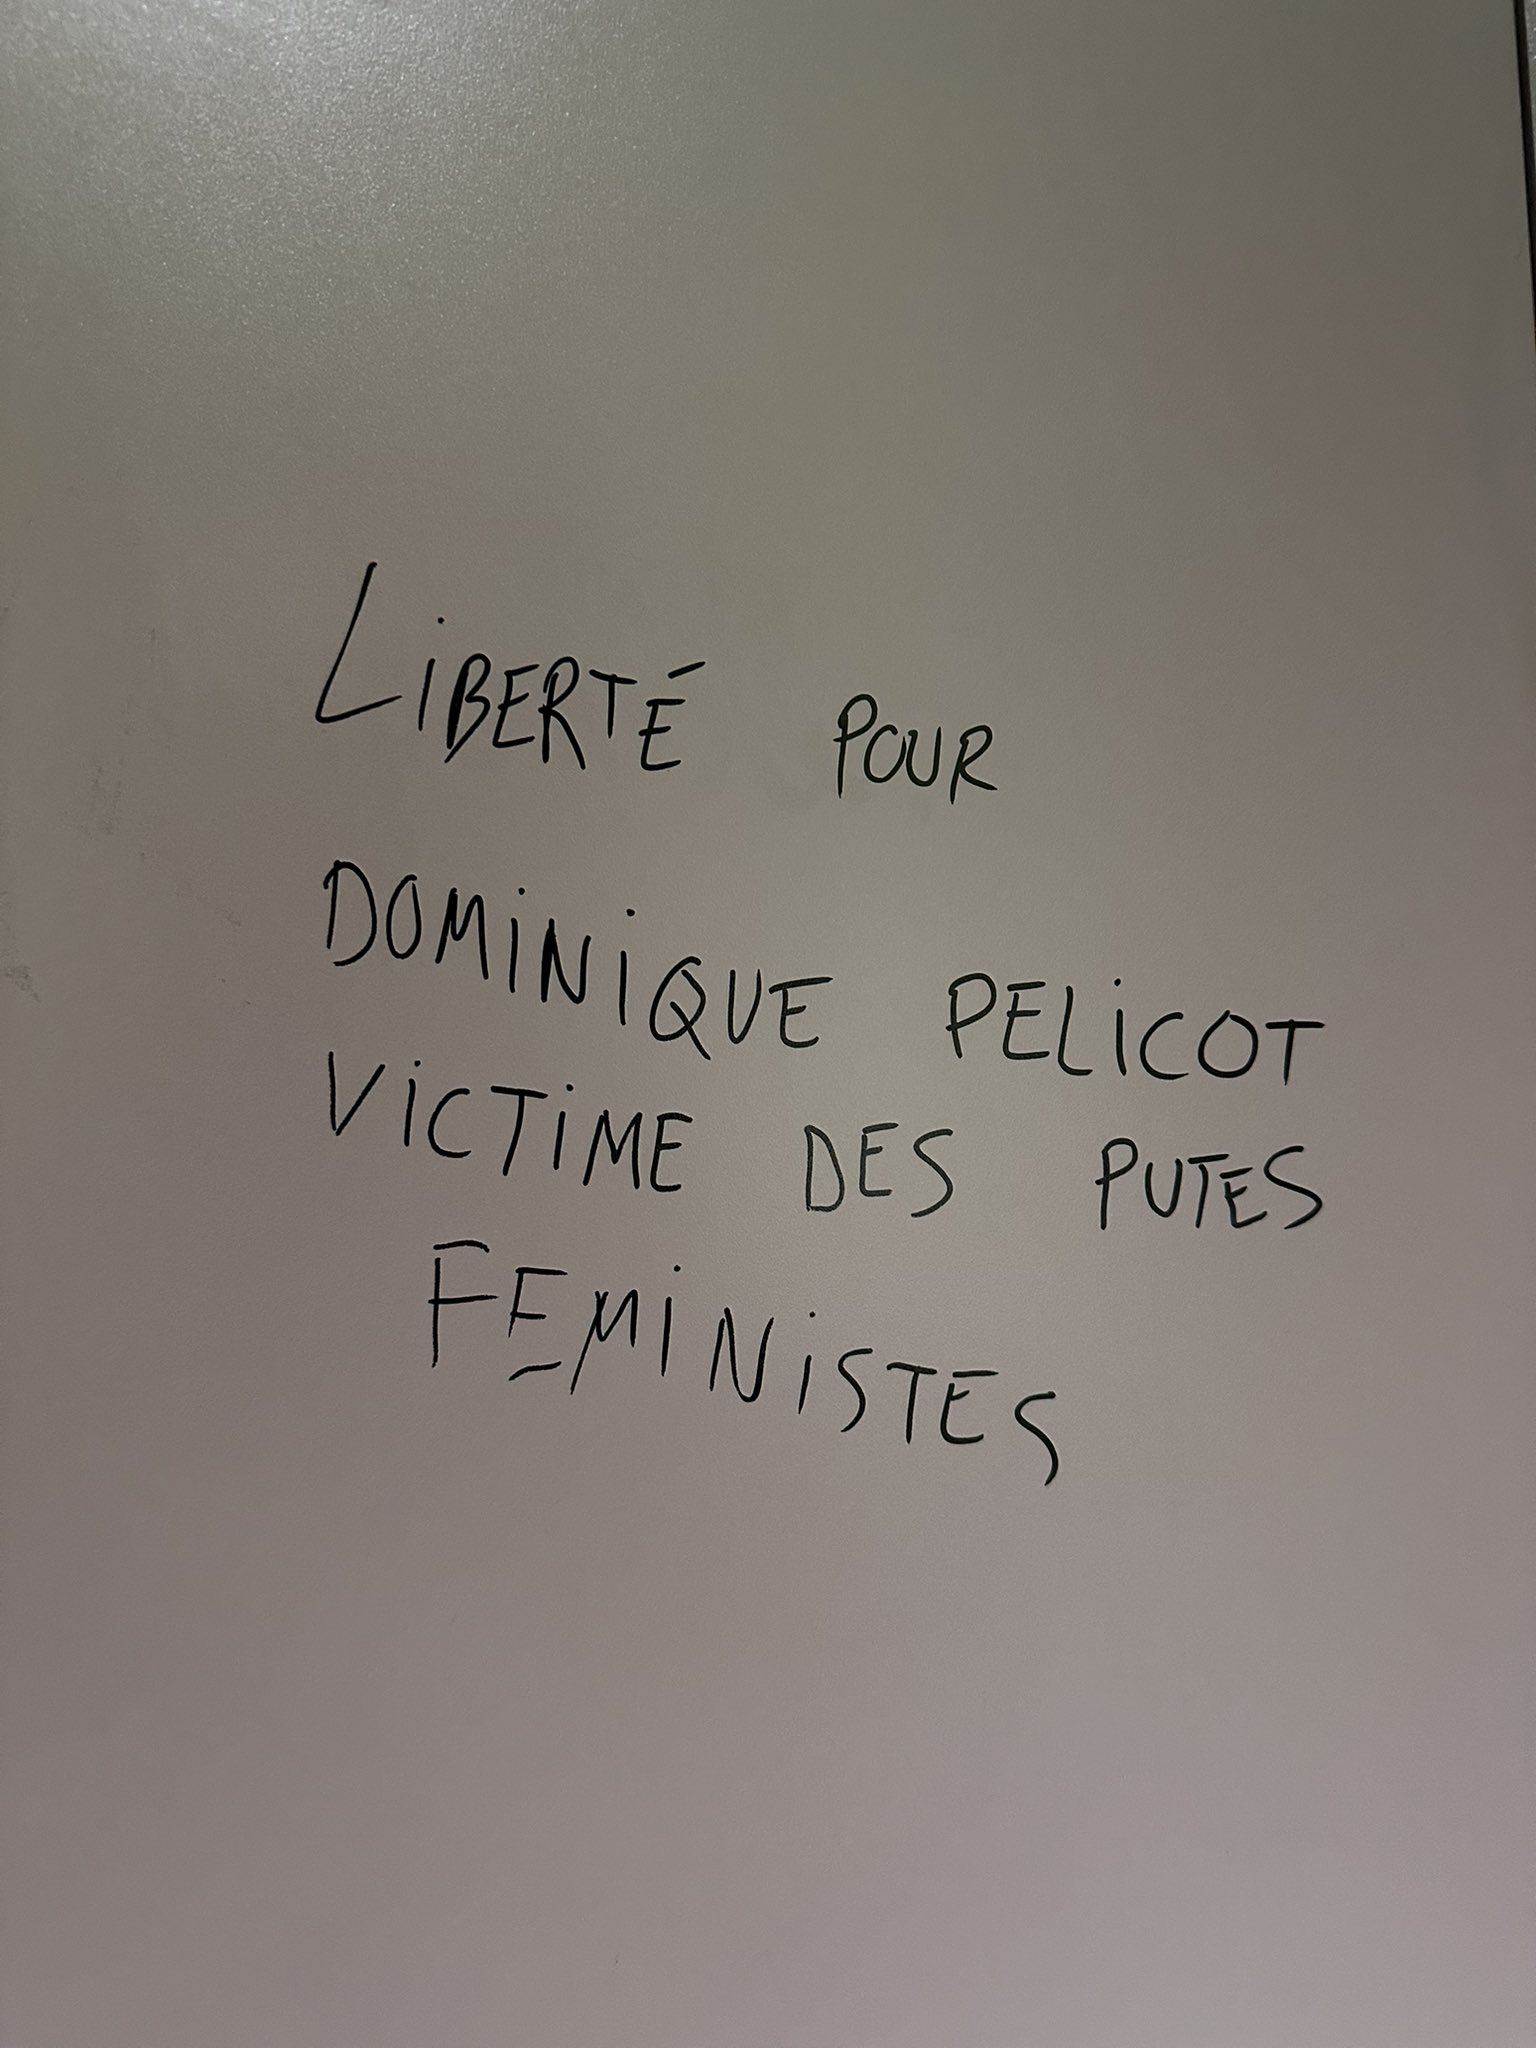 LIBERTÉ POUR
DOMINIQUE PELICOT
VICTIME DES PUTES
FEMINISTES